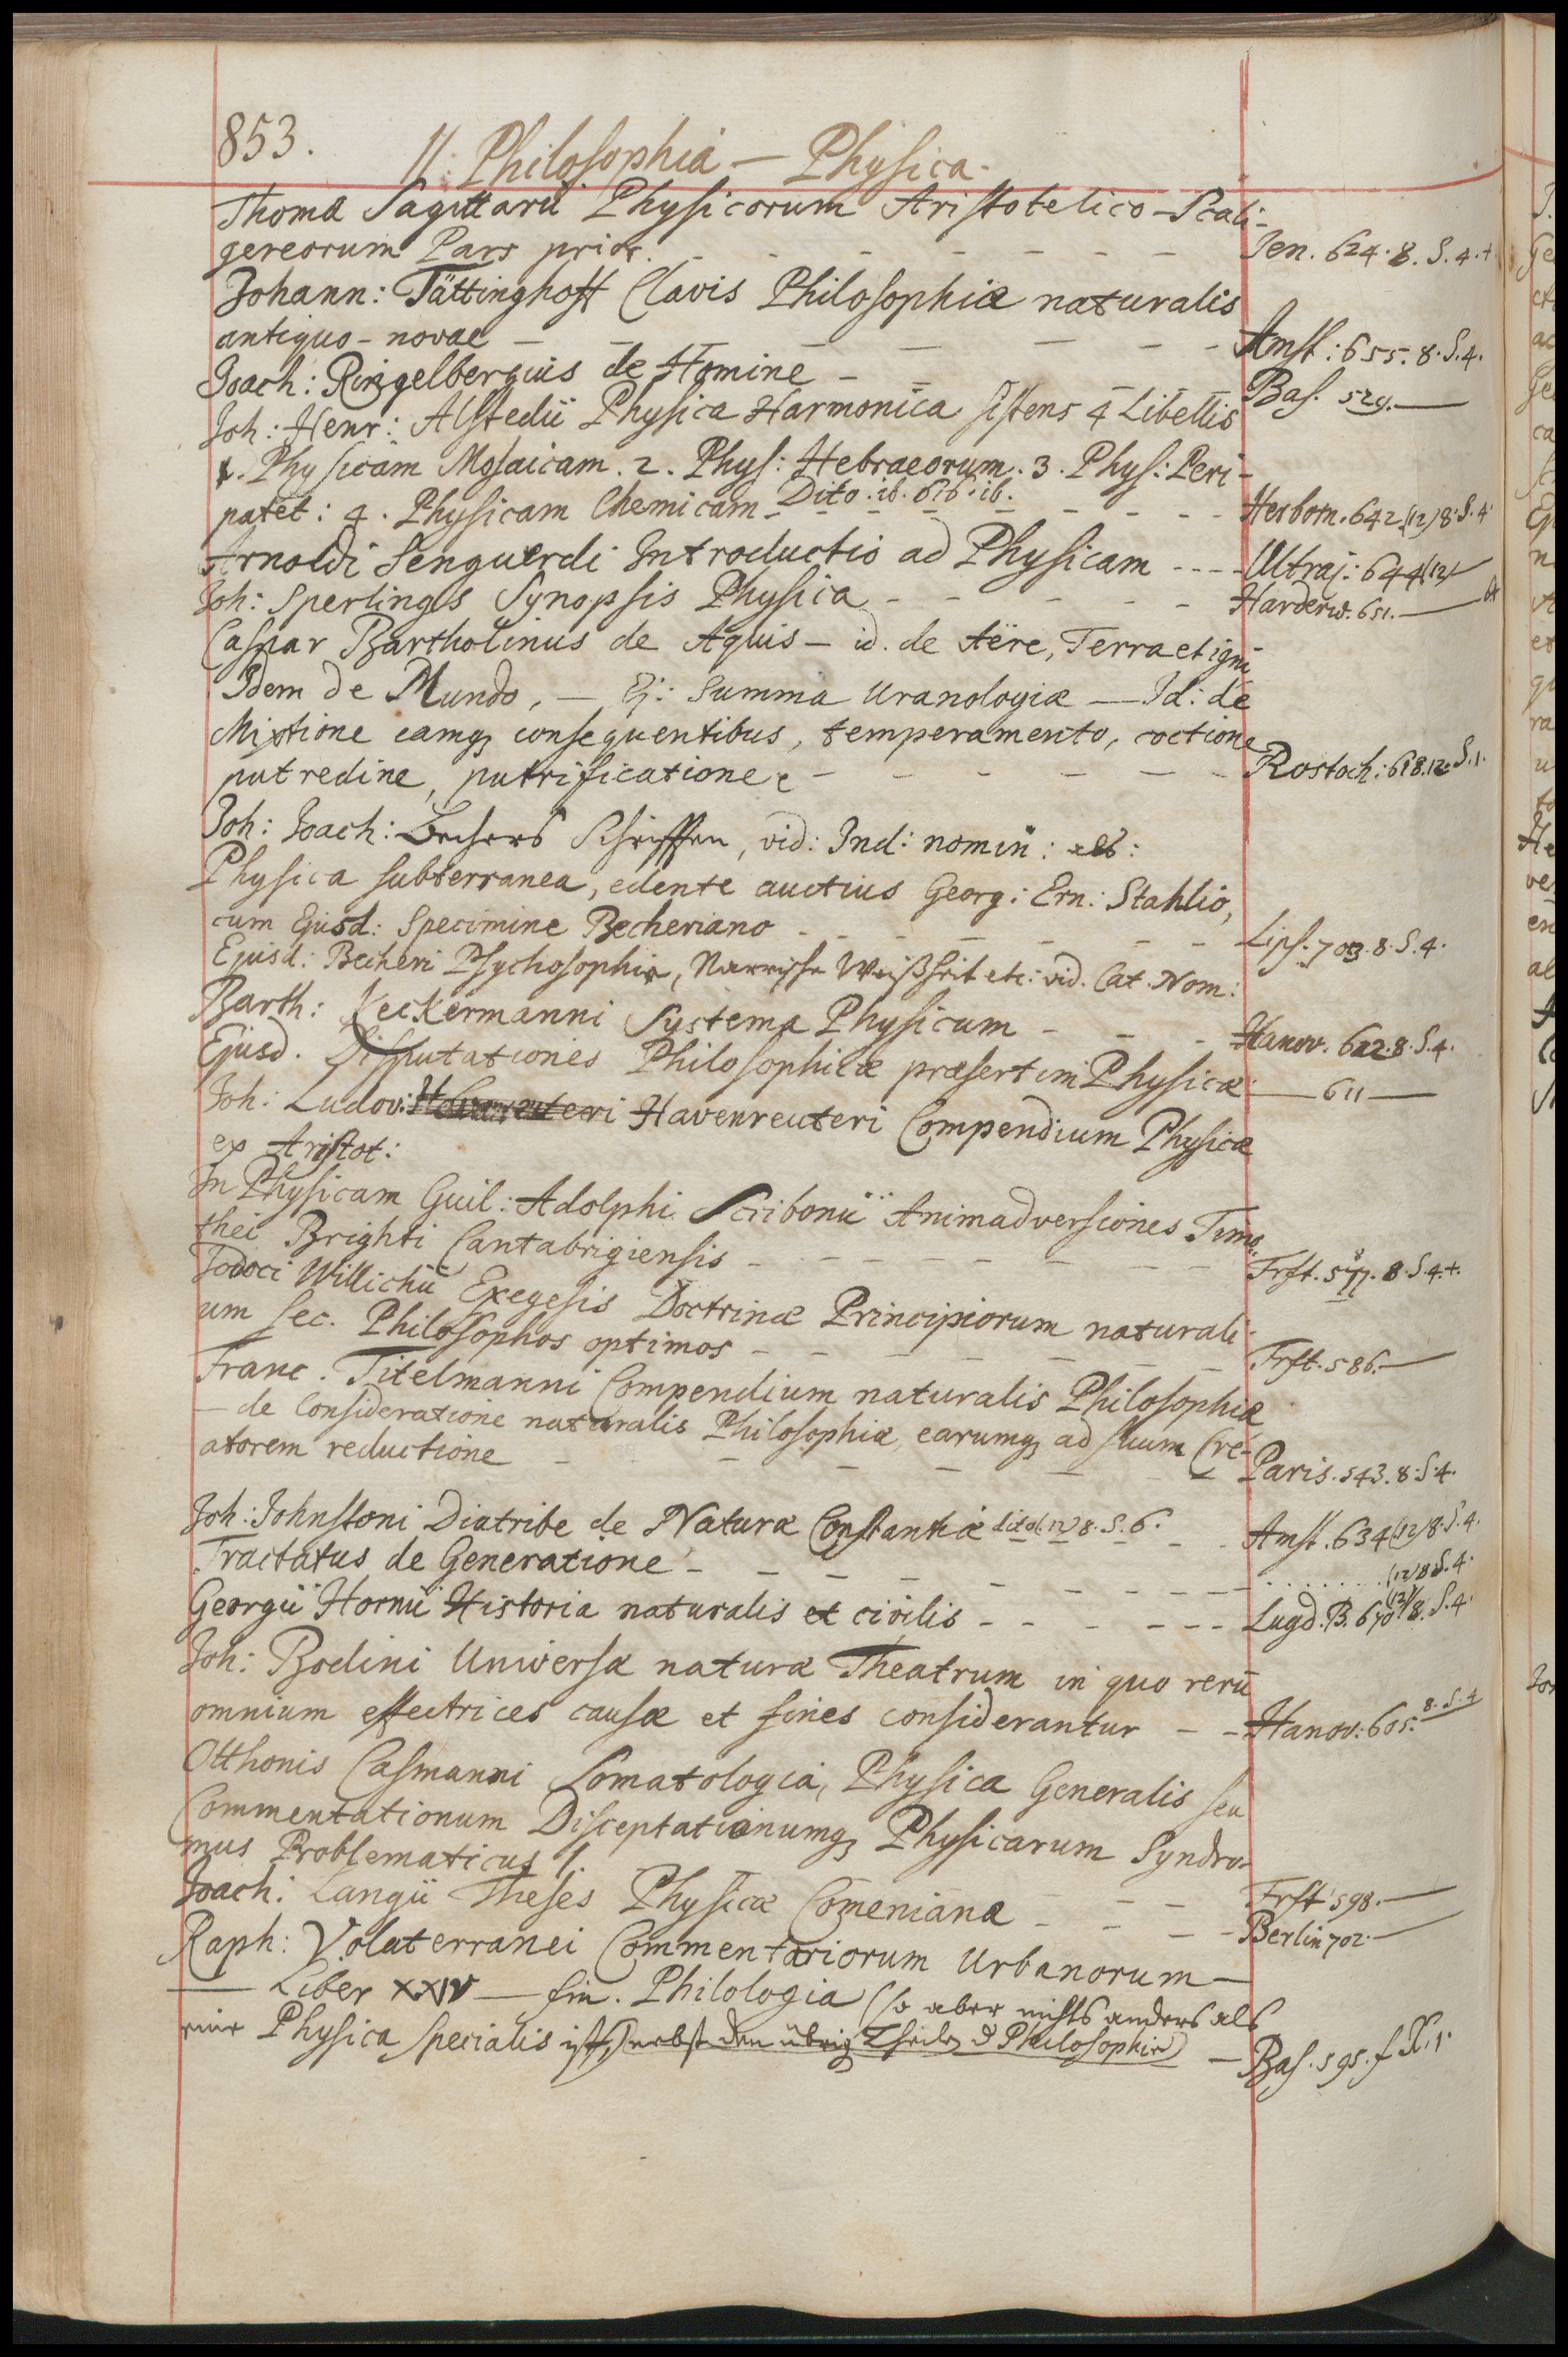 853.
11. Philosophia - Physica.
Thomæ Sagittarii Physicorum Aristotelico-Scali-
gereorum Pars prior. Jen. 624. 8. S. 4. +
Johann: Tättinghoff Clavis Philosophiæ naturalis
antiquo-novae Amst: 655. 8. S. 4.
Joach: Ringelbergius de Homine Bas. 529. —
Joh: Henr: Alstedii Physica Harmonica sistens 4 Libellis
1. Physicam Mosaicam. 2. Phys: Hebraeorum. 3. Phys: Peri-
patet: 4. Physicam Chemicam Dito. ib. 616. ib. Herborn. 642. (12) 8. S. 4.
Arnoldi Senguerdi Introductio ad Physicam Ultraj: 644 (12) —
Joh: Sperlings Synopsis Physica Harderw. 651. —
Caspar Bartholinus de Aquis - id. de Aëre, Terra et igni
Idem de Mundo, — Ej: Summa Uranologiæ — Id: de
Mixtione eamq3 consequentibus, temperamento, coctione
putredine, putrificatione Rostoch: 618. 12. S. 1.
Joh: Joach: Bechers Schrifften, vid: Ind: nomin:
Physica subterranea, edente auctius Georg: Ern: Stahlio,
cum Ejusd: Specimine Becheriano Lips. 703. 8. S. 4.
Ejusd: Becheri Psychosophia, Narrische Weißheit etc: vid. Cat. Nom:
Barth: Keckermanni Systema Physicum Hanov. 622. 8. S. 4.
Ejusd. Disputationes Philosophicæ præsertim Physicæ — 611 —
Joh: Ludov: Havenreuteri Compendium Physicæ
ex Aristot:
In Physicam Guil: Adolphi Scribonii Animadversiones Timo-
thei Brighti Cantabrigiensis Frft. 8. S. 4. +.
Jodoci Willichii Exegesis Doctrinæ Principiorum naturali-
um sec. Philosophos optimos Frft. 586. —
Franc. Titelmanni Compendium naturalis Philosophiæ
— de Consideratione naturalis Philosophiæ, earumq3 ad suum Cre-
atorem reductione Paris. 543. 8. S. 4.
Joh: Johnstoni Diatribe de Naturæ Constantia dito (12) 8. S. 6. Amst. 634 (12) 8. S. 4.
Tractatus de Generatione (12) 8 S. 4.
Georgii Hornii Historia naturalis et civilis Lugd. B. 670 (12) 8. S. 4.
Joh: Bodini Universæ naturæ Theatrum in quo rerū
omnium effectrices causæ et fines considerantur Hanov: 605. 8. S. 4
Otthonis Casmanni Somatologia, Physica Generalis seu
Commentationum Disceptationumq3 Physicarum Syndro-
mus Problematicus 1. Frft 598. —
Joach: Langii Theses Physicæ Comenianæ Berlin 702. —
Raph: Volaterranei Commentariorum Urbanorum —
— Liber XXIV — fin. Philologia (so aber nichts anders als
eine Physica specialis ist,) nebst den übrig Theilen d Philosophie) Bas. 595. f X. 1.